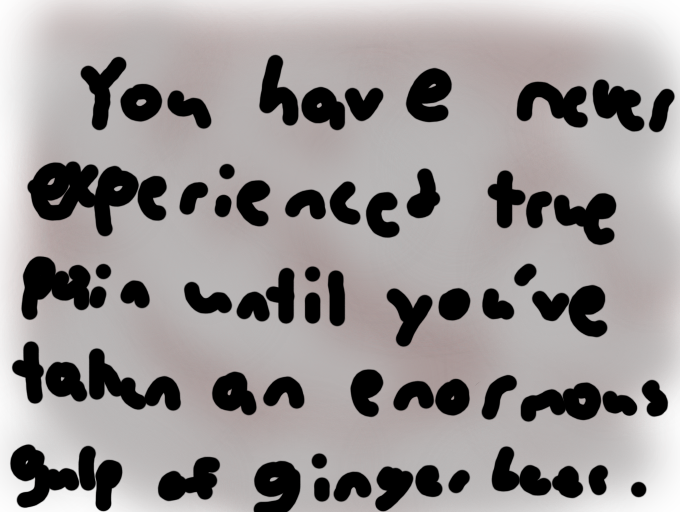 You have never
experienced true
pain until you've
taken an enormous
gulp of ginger beer.